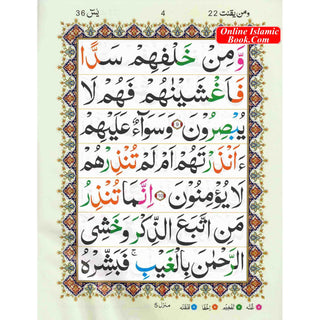 يٰسٓ 36
4
ومن يقنت 22
Online Islamic
Book.Com
وَّمِنْ خَلْفِهِمْ سَدًّا
فَاَغْشَيْنٰهُمْ فَهُمْ لَا
يُبْصِرُوْنَ ۹ وَسَوَآءٌ عَلَيْهِمْ
ءَاَنْذَرْتَهُمْ اَمْ لَمْ تُنْذِرْهُمْ
لَا يُؤْمِنُوْنَ ۱۰ اِنَّمَا تُنْذِرُ
مَنِ اتَّبَعَ الذِّكْرَ وَخَشِيَ
الرَّحْمٰنَ بِالْغَيْبِ ۚ فَبَشِّرْهُ
منزل ۵